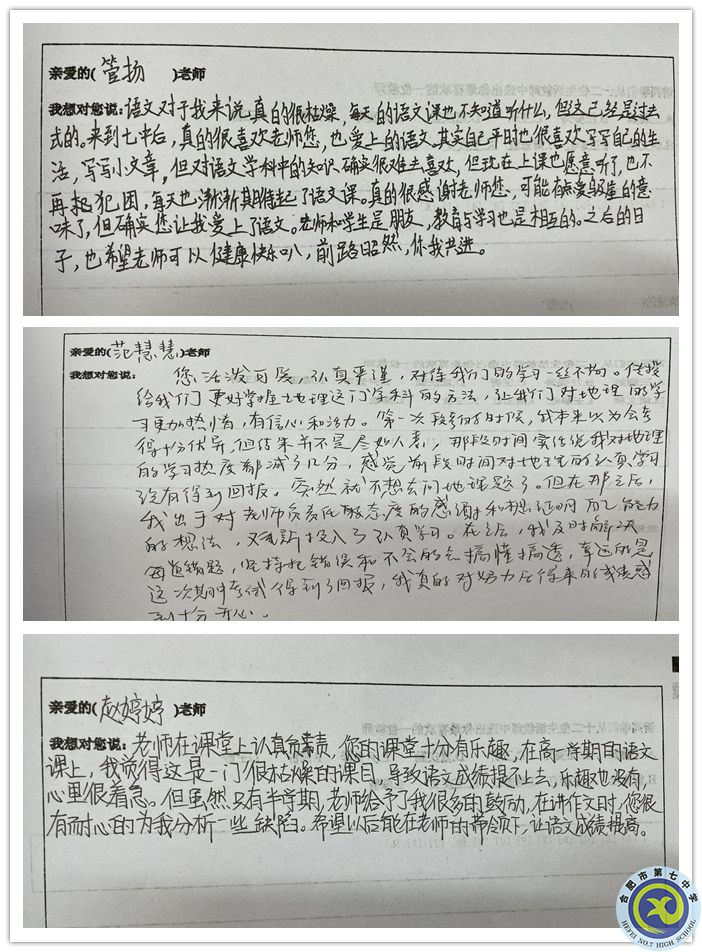 亲爱的(管扬)老师
我想对您说:语文对于我来说,真的很枯燥,每天的语文课也不知道听什么,但这已经是过去
式的。来到七中后,真的很喜欢老师您,也爱上的语文。其实自己平时也很喜欢写写自己的生
活,写写小文章,但对语文学科中的知识确实很难去喜欢,但现在上课也愿意听了,也不
再犯困,每天也渐渐期待起了语文课。真的很感谢老师您,可能有点爱屋及屋的意
味了,但确实您让我爱上了语文。老师和学生是朋友,教育与学习也是相互的。之后的日
子,也希望老师可以健康快乐叭,前路昭然,你我共进。
亲爱的(范慧慧)老师
我想对您说:您活泼可爱,认真严谨,对待我们的学习一丝不拘。传授
给我们更好掌握地理这门学科的方法,让我们对地理的学
习更加热情,有信心和活力。第一次段考的时候,我本来以为会考
得十分优异,但结果并不是尽如人意,那段时间实在说我对地理
的学习热度都减了几分,感觉前段时间对地理的认真学习
没有得到回报。突然就不想去问地理题了。但在那之后,
我出于对老师负责任教态度的感谢和想证明自己能力
的想法,又重新投入了认真学习。在之后,我及时解决
每道错题,坚持把错误和不会的点搞懂搞透,幸运的是
这次期中考试得到了回报,我真的对努力后得来的成绩感
到十分开心。
亲爱的(赵婷婷)老师
我想对您说:老师在课堂上认真负责,您的课堂十分有乐趣,在高一学期的语文
课上,我觉得这是一门很枯燥的课目,导致语文成绩提不上去,乐趣也没有,
心里很着急。但虽然只有半学期,老师给予了我很多的鼓励,在讲作文时,您很
有耐心的为我分析一些缺陷。希望以后能在老师的带领下,让语文成绩提高。
合肥市第七中学
HEFEI NO.7 HIGH SCHOOL